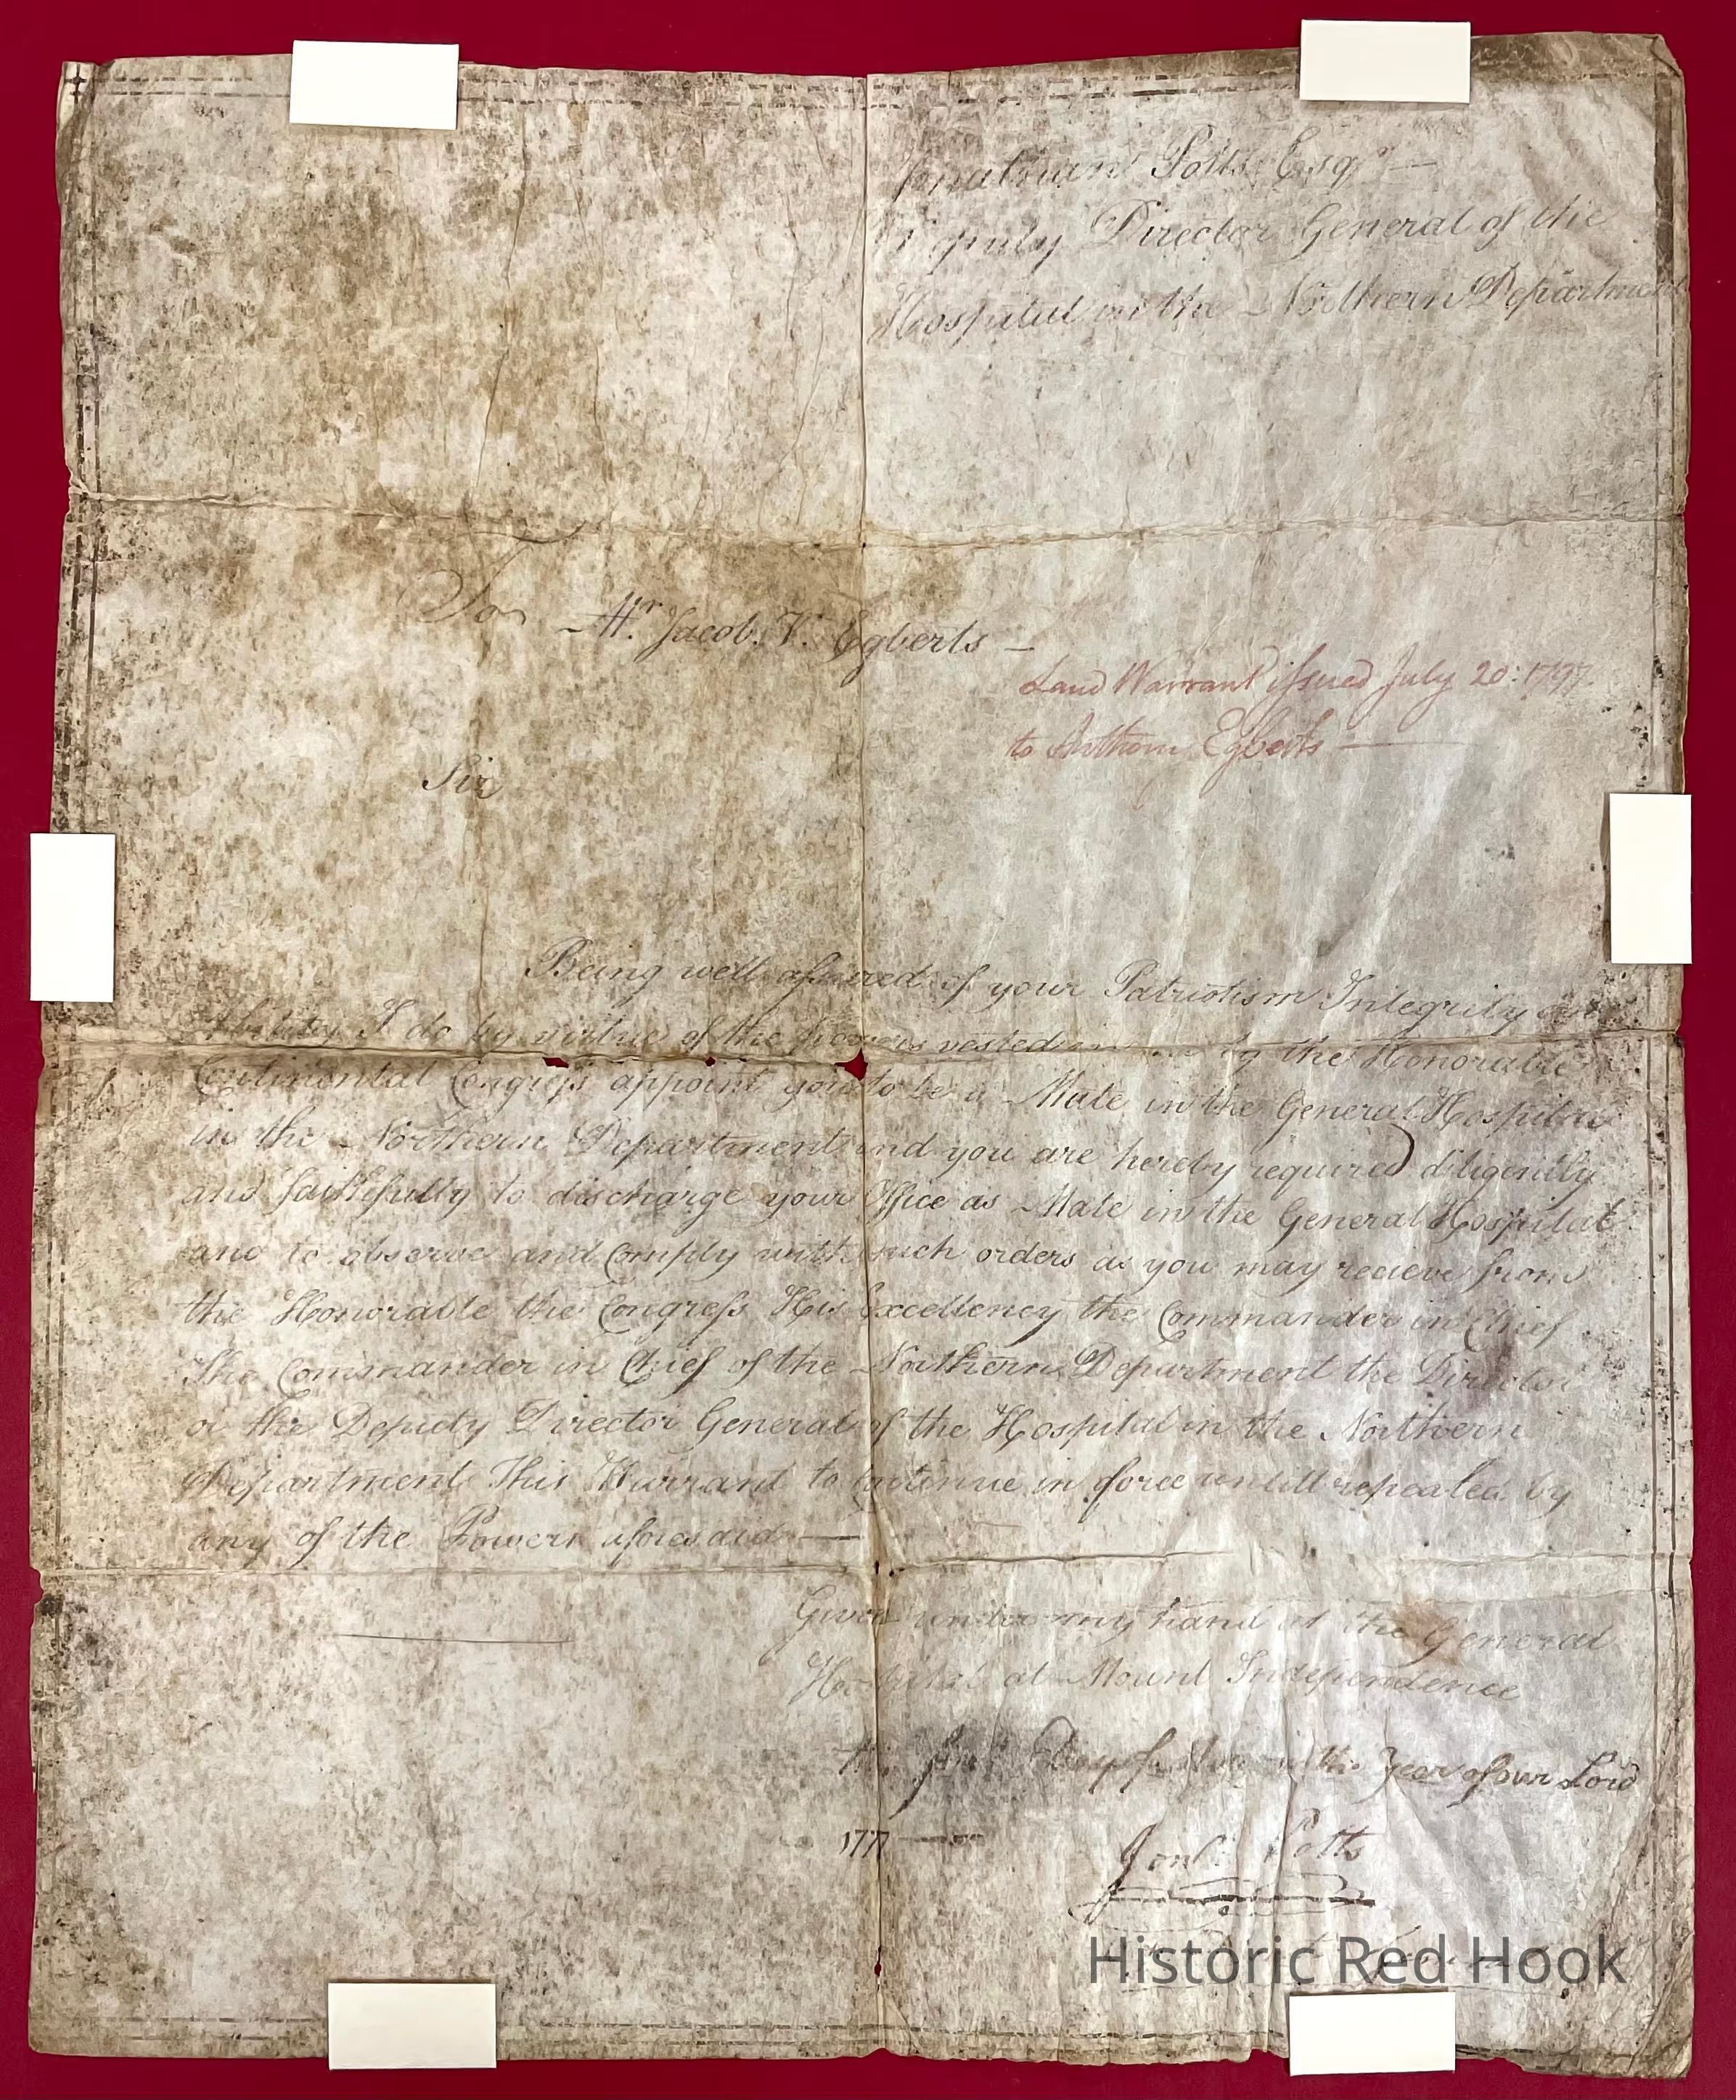 Jonathan Potts Esqr —
Deputy Director General of the
Hospital in the Northern Department
To Mr. Jacob. V. Egberts —
Land Warrant issued July 20: 1797.
to Anthony Egberts —
Sir
Being well assured of your Patriotism Integrity and
Ability I do by virtue of the powers vested in me by the Honorable
Continental Congress appoint you to be a Mate in the General Hospital
in the Northern Department and you are hereby required diligently
and faithfully to discharge your Office as Mate in the General Hospital
and to observe and Comply with such orders as you may recieve from
the Honorable the Congress His Excellency the Commander in Chief
The Commander in Chief of the Northern Department the Director
or the Deputy Director General of the Hospital in the Northern
Department This Warrant to Continue in force untill repealed by
any of the Powers aforesaid —
Given under my hand at the General
Hospital at Mount Independence
the first Day of in the Year of our Lord
1777 —
Jonn. Potts
Historic Red Hook